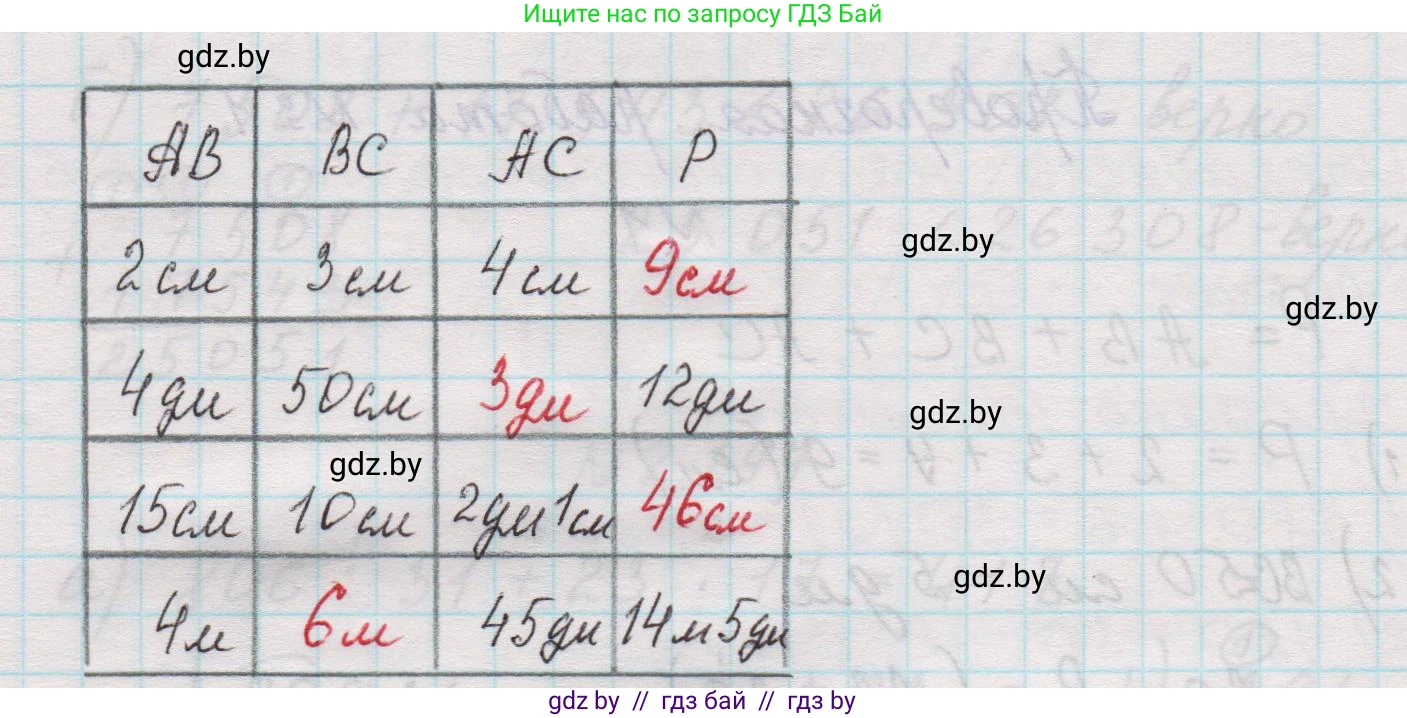 Ищите нас по запросу ГДЗ Бай
gdz.by
AB BC AC P
2 см 3 см 4 см 9 см
gdz.by
gdz.by
4 дм 50 см 3 дм 12 дм
gdz.by
gdz.by
15 см 10 см 2 дм 1 см 46 см
gdz.by
4 м 6 м 45 дм 14 м 5 дм
gdz.by // гдз бай // гдз by